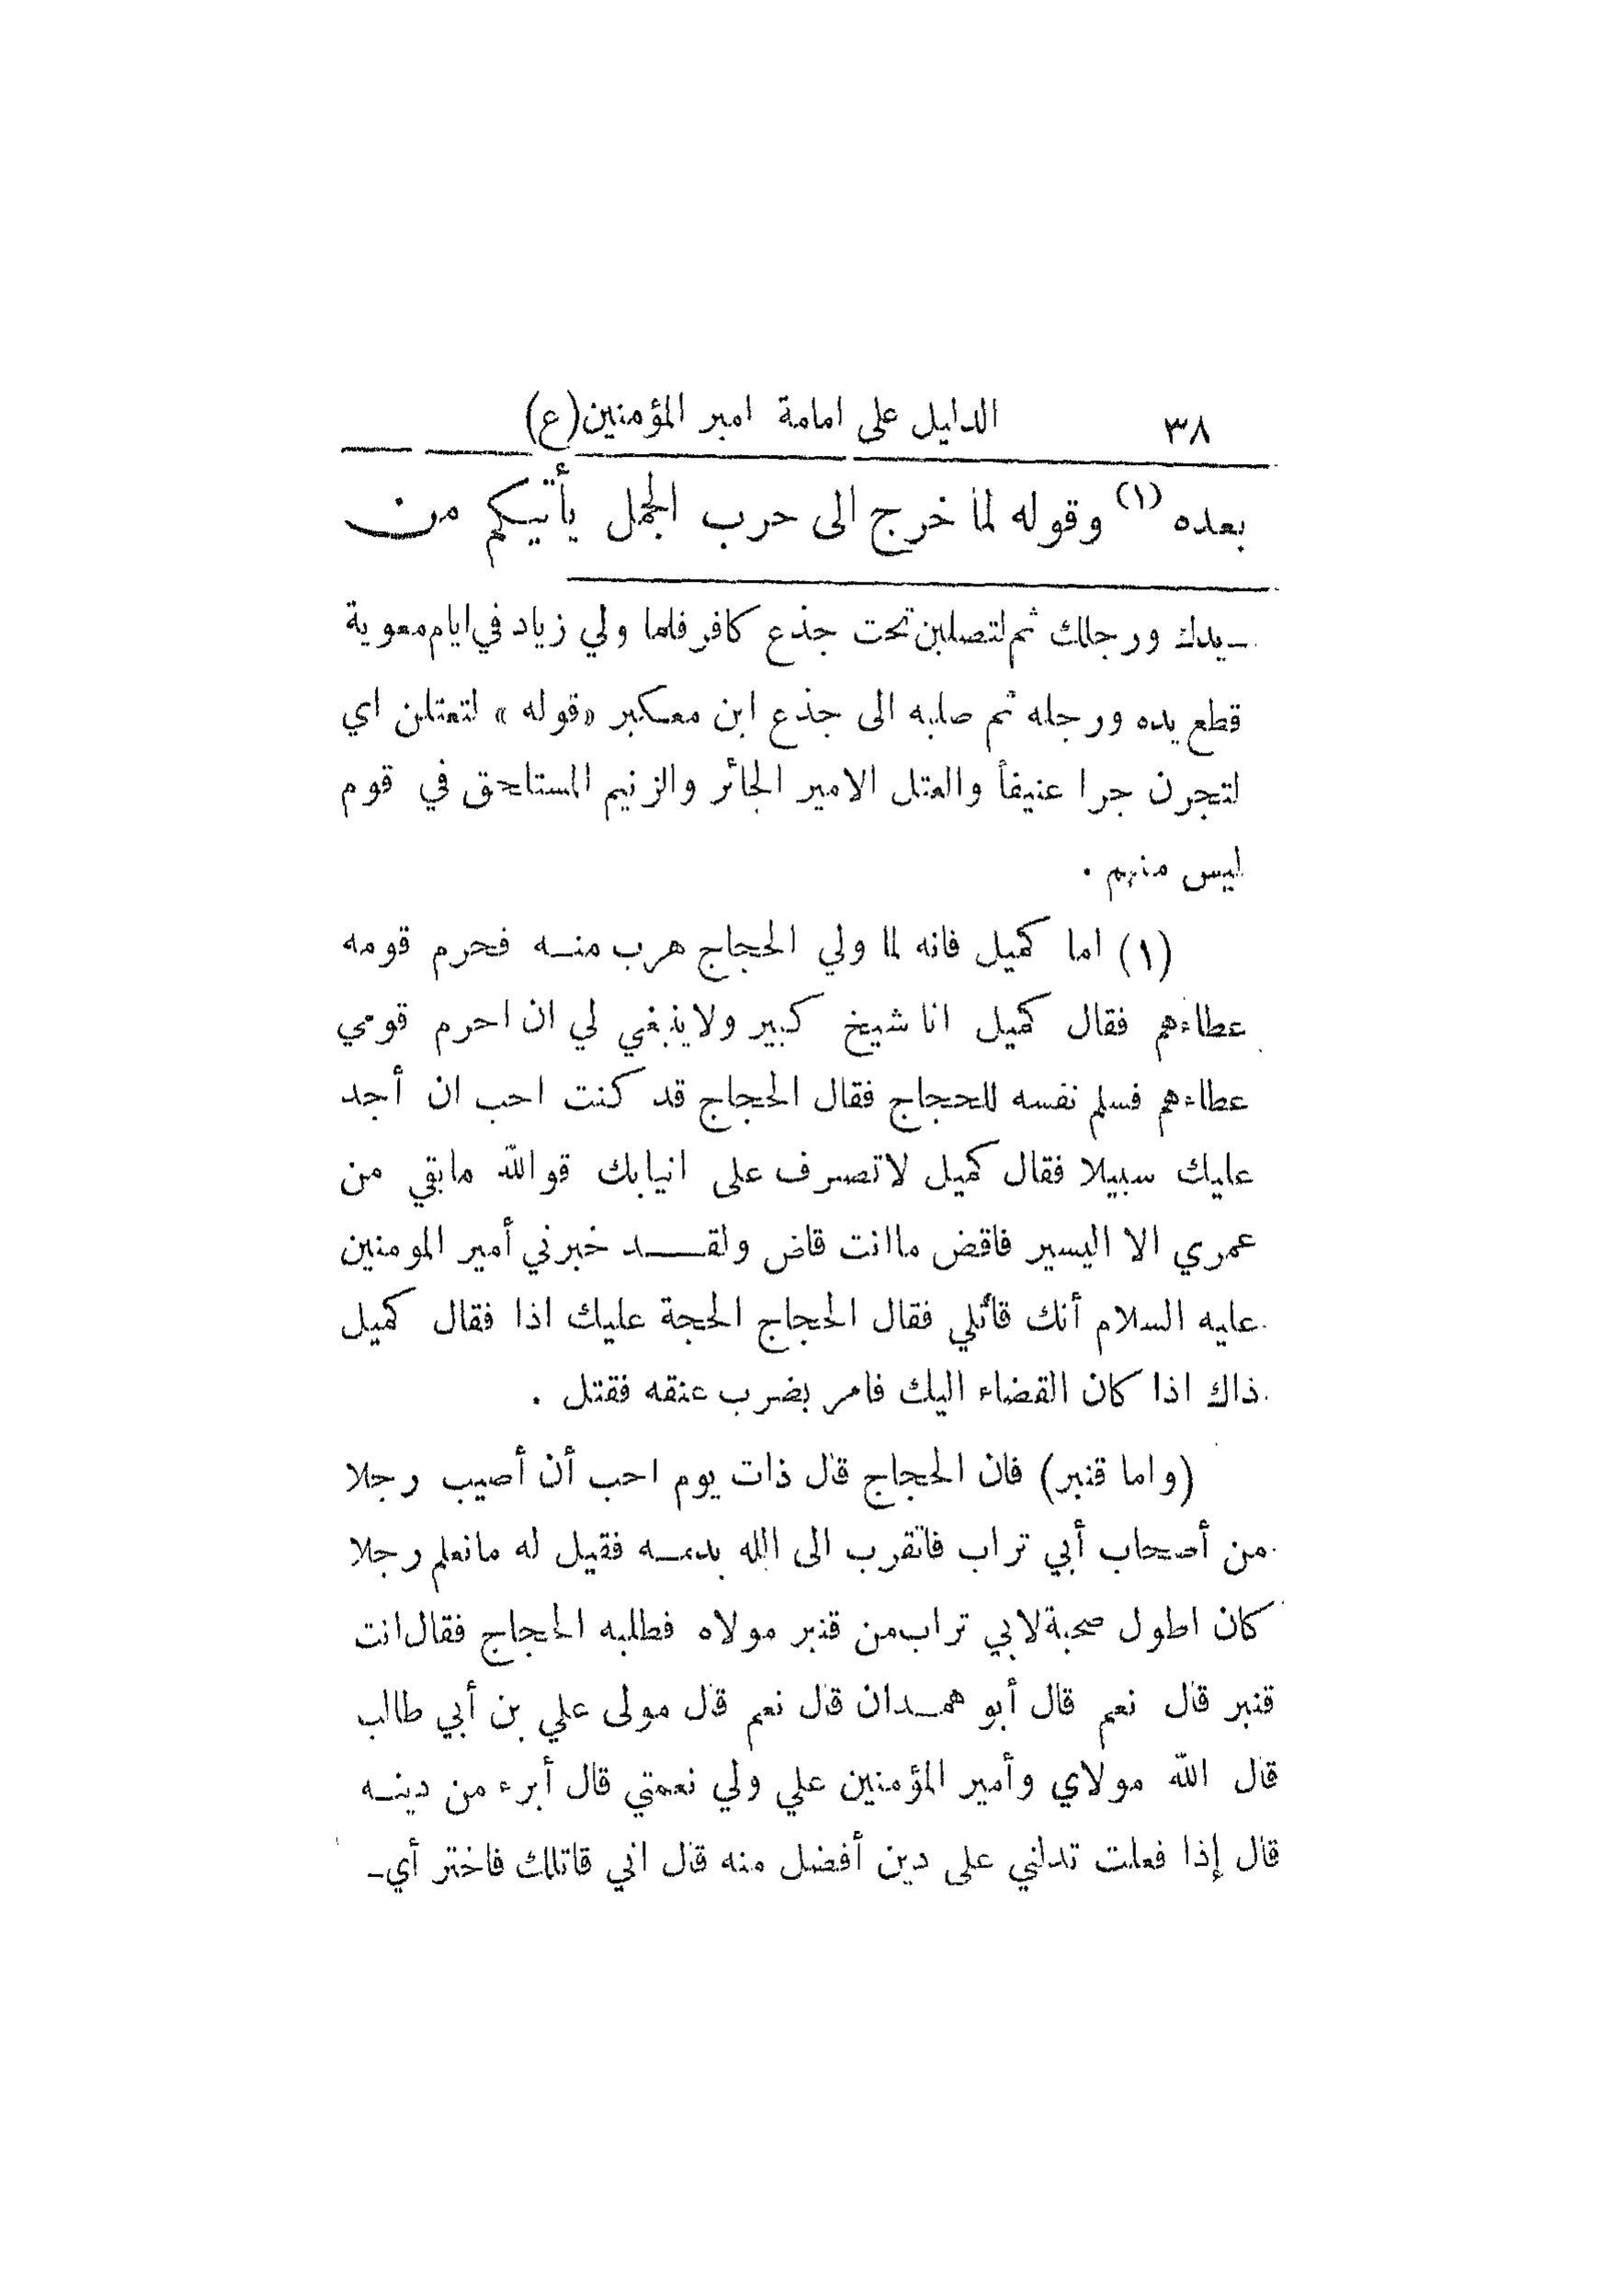 ٣٨ الدليل على امامة امير المؤمنين(ع)
بعده (١) وقوله لما خرج الى حرب الجمل يأتيكم من
ـ يدك ورجلك ثم لتصلبن تحت جذع كافر فلما ولي زياد في ايام معوية
قطع يده ورجله ثم صلبه الى جذع ابن معكبر «قوله» لتعتلن اي
لتجرن جرا عنيفاً والعتل الامير الجائر والزنيم المستلحق في قوم
ليس منهم .
(١) اما كميل فانه لما ولي الحجاج هرب منه فحرم قومه
عطاءهم فقال كميل انا شيخ كبير ولاينبغي لي ان احرم قومي
عطاءهم فسلم نفسه للحجاج فقال الحجاج قد كنت احب ان أجد
عليك سبيلا فقال كميل لاتصرف على انيابك فوالله مابقي من
عمري الا اليسير فاقض ماانت قاض ولقد خبرني أمير المومنين
عليه السلام أنك قاتلي فقال الحجاج الحجة عليك اذا فقال كميل
ذاك اذا كان القضاء اليك فامر بضرب عنقه فقتل .
(واما قنبر) فان الحجاج قال ذات يوم احب أن أصيب رجلا
من أصحاب أبي تراب فاتقرب الى الله بدمه فقيل له مانعلم رجلا
كان اطول صحبة لابي تراب من قنبر مولاه فطلبه الحجاج فقال انت
قنبر قال نعم قال أبو همدان قال نعم قال مولى علي بن أبي طالب
قال الله مولاي وأمير المؤمنين علي ولي نعمتي قال أبرء من دينه
قال إذا فعلت تدلني على دين أفضل منه قال اني قاتلك فاختر أي ـ